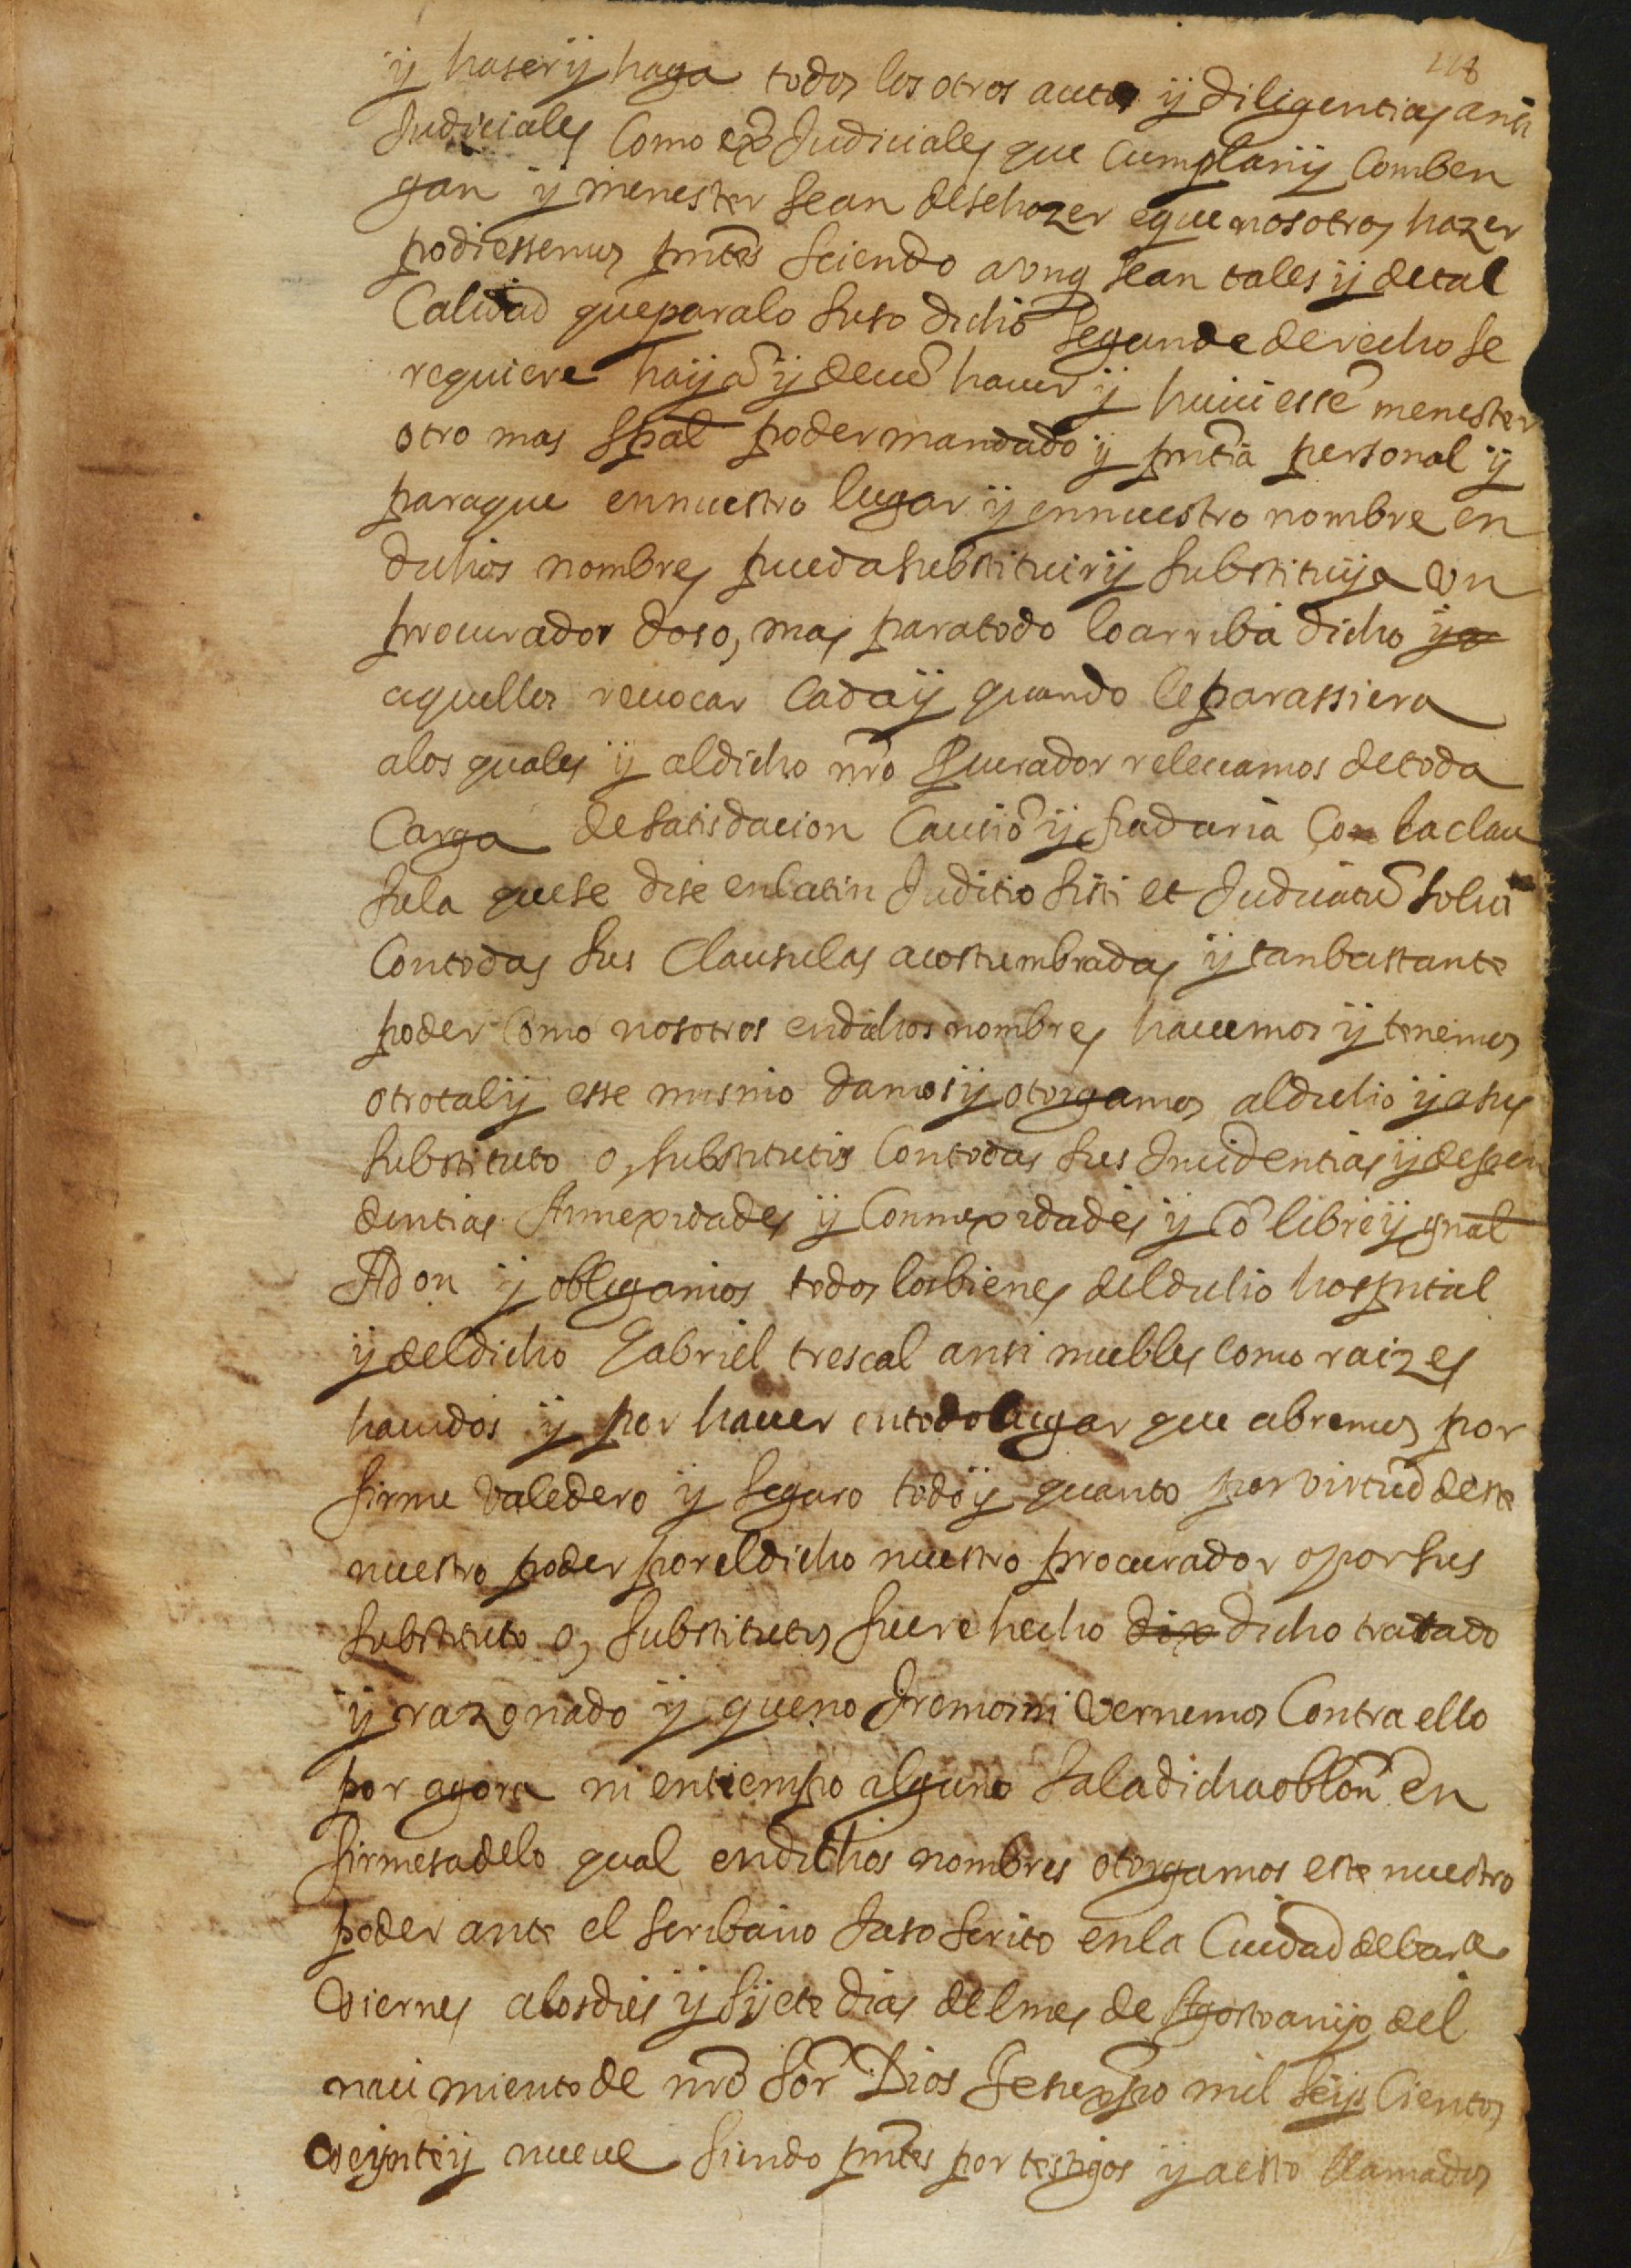 118
ÿ haser ÿ haga todos los otros autos ÿ diligentias ansi
Judiciales Como exª Judiciales que Cumplan ÿ Comben
gan ÿ menester sean dese hazer e que nosotros hazer
podiessemos pntes Sciendo avnq sean tales ÿ de tal
Calidad que para lo suso dicho segun de derecho se
requiere haÿã ÿ deuẽ hauer ÿ huuiessẽ menester
otro mas spal poder mandado ÿ pntia personal ÿ
paraque en nuestro lugar ÿ en nuestro nombre en
dichos nombres pueda substituir ÿ substituÿa vn
procurador dos o, mas para todo lo arriba dicho ÿ a
aquellos reuocar Cada ÿ quando le parassiera
a los quales ÿ al dicho nro Pcurador releuamos de toda
Carga de satisdacion Cautiõ ÿ fiaduria Con la clau
sula que se dise en latin Juditio sisti et Judicatũ solui
Con todas sus Clausulas acostumbradas ÿ tan bastante
poder Como nosotros en dichos nombres hauemos ÿ tenemos
otro tal ÿ esse mismo damos ÿ otorgamos al dicho ÿ a sus
substituto o, substitutos Con todas sus Incidentias ÿ depen
dentias Annexidades ÿ Connexidades ÿ Cõ libre ÿ gnal
Adon ÿ obligamos todos los bienes del dicho hospital
ÿ del dicho Gabriel trescal ansi muebles como raizes
hauidos ÿ por hauer en todo lugar que abremos por
firme valedero ÿ seguro todo ÿ quanto por virtud deste
nuestro poder por el dicho nuestro procurador o por sus
substituto o, substitutos fuere hecho dix dicho tratado
ÿ razonado ÿ que no Iremos ni vernemos Contra ello
por agora ni en tiempo alguno sa la dicha oblon en
firmesa de lo qual en dichos nombres otorgamos este nuestro
poder ante el scribano Juso scrito en la Ciudad de barª
viernes a los dies ÿ siÿete dias del mes de Agosto anÿo del
nacimiento de nro Sor Dios Jesuxpo mil seÿs Cientos
veÿnte ÿ nueue siendo pntes por testigos ÿ a esto llamados